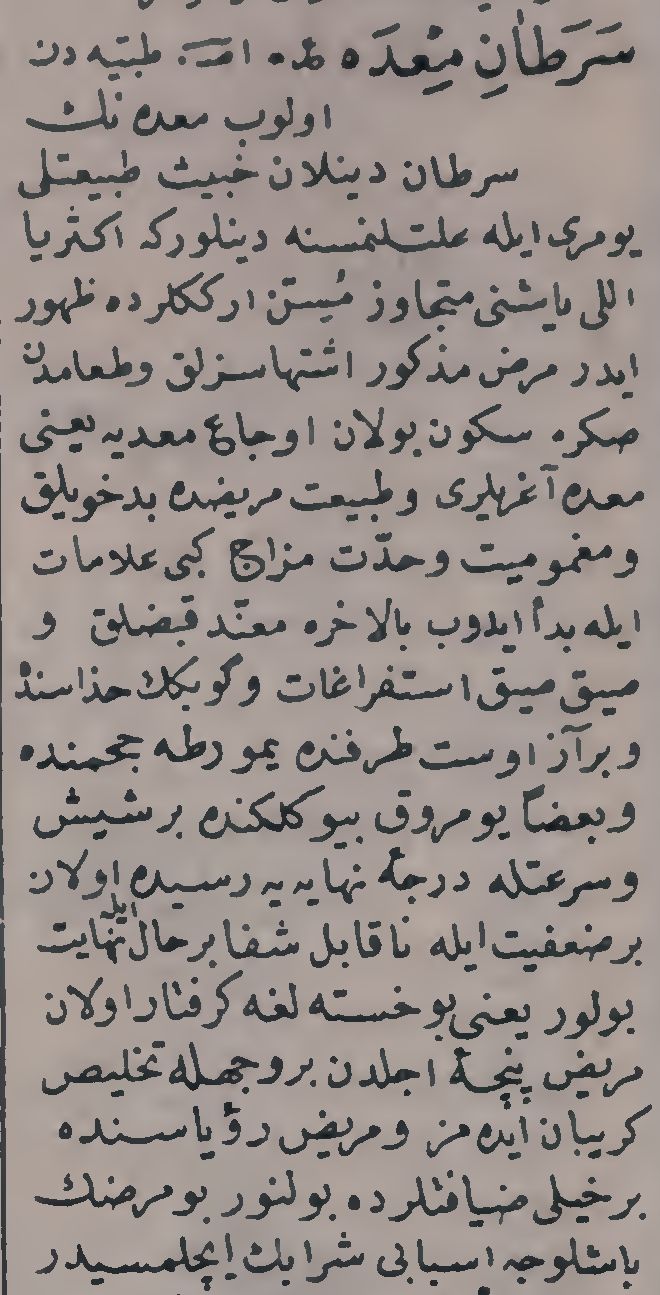 سَرَطَانِ مِعْدَه طبيه دن
اولوب معده نك
سرطان دينلان خبيث طبيعتلى
يومرى ايله علتلنمسنه دينلوركه اكثريا
اللى ياشنى متجاوز مُسِتن ارككلرده ظهور
ايدر مرض مذكور اشتهاسزلق وطعامدن
صكره سكون بولان اوجاع معديه يعنى
معده آغريلرى وطبيعت مريضده بدخويلق
ومغموميت وحدّت مزاج كبى علامات
ايله بدأ ايدوب بالاخره معنّد قبضلق و
صيق صيق استفراغات وكوبكك حذاسنده
وبرآز اوست طرفنده يمورطه حجمنده
وبعضاً يومروق بيوكلكنده برشيش
وسرعتله درجهٔ نهايه يه رسيده اولان
برضعفيت ايله ناقابل شفا برحال ايله نهايت
بولور يعنى بو خسته لغه كرفتار اولان
مريض پنجهٔ اجلدن بروجهله تخليص
كريبان ايده مز ومريض رؤياسنده
برخيلى ضيافتلرده بولنور بومرضك
باشلوجه اسبابى شرابك ايچلمسيدر